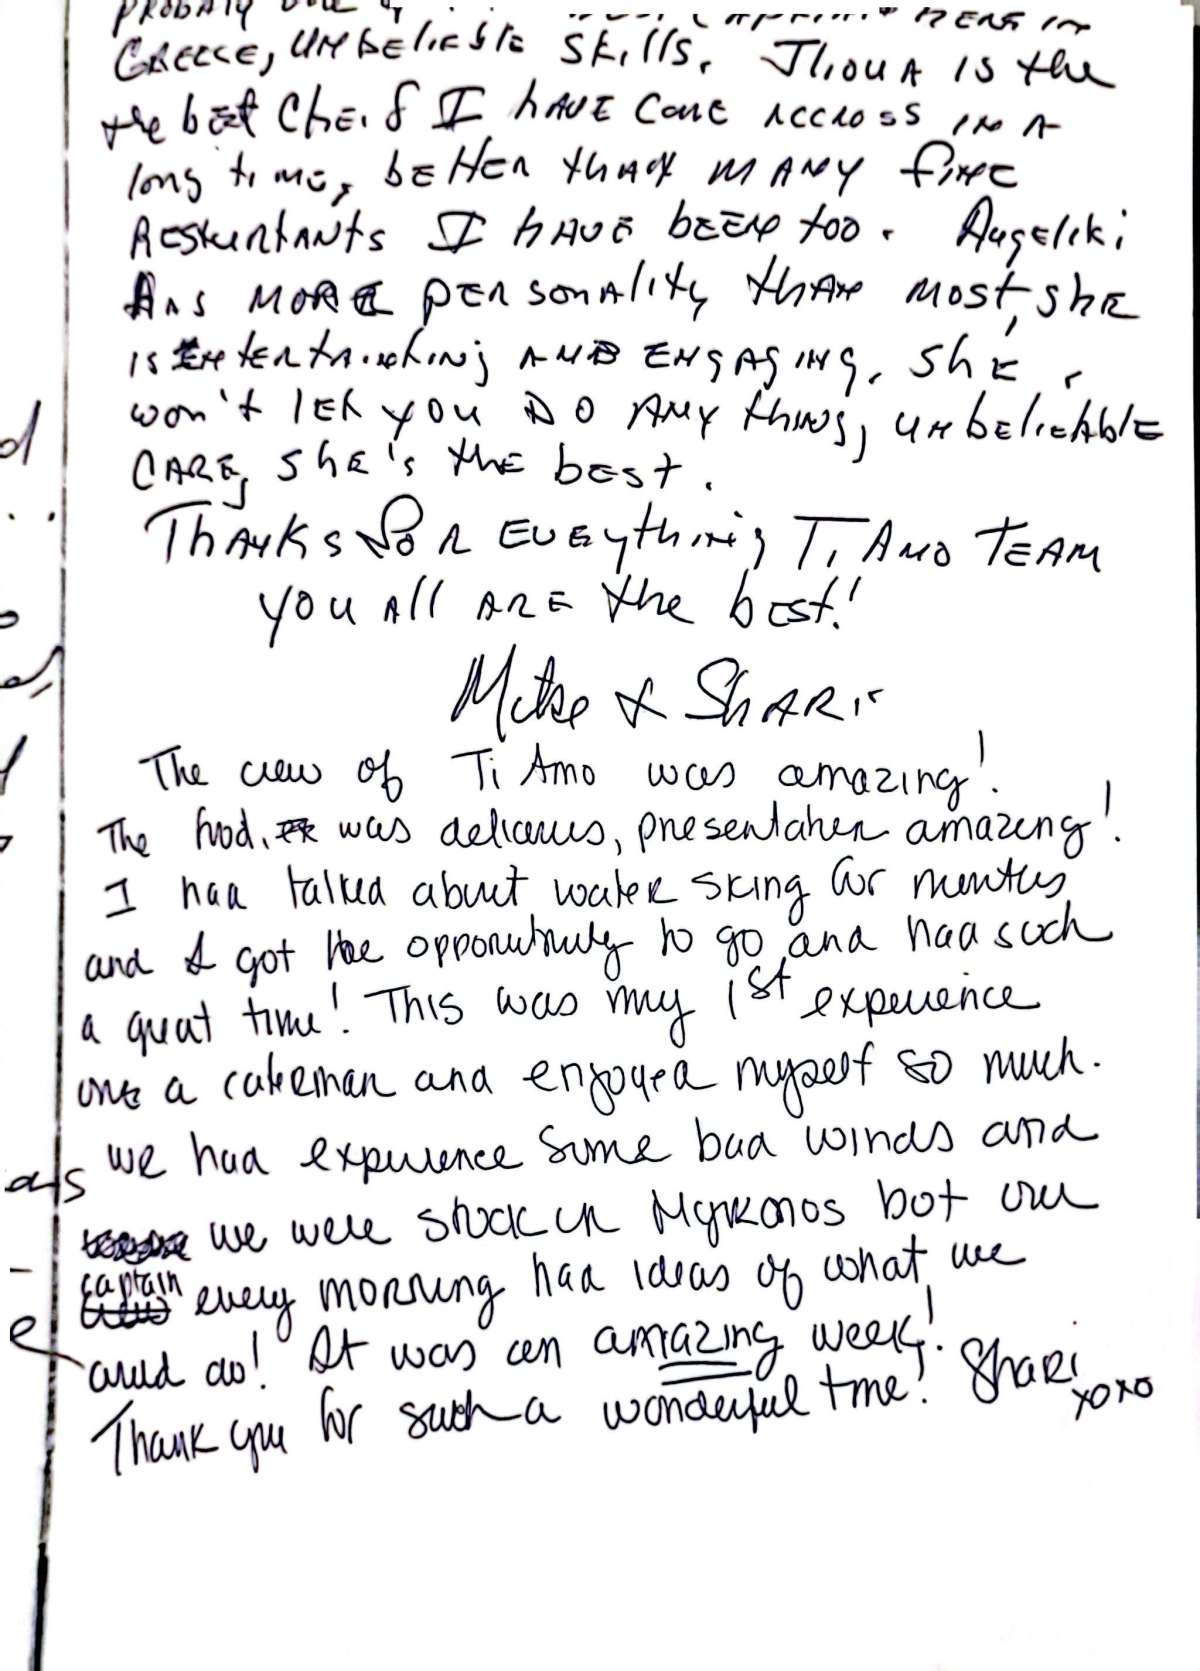 Greece, unbelievable skills. Jlioua is the
the best Cheif I have come accross in a
long time, better than many fine
Reskurtants I have been too. Angeliki
has more personality than most, she
is entertaining and engaging. She
won't let you do any thing, unbelieable
care, she's the best.
Thanks for eveything Ti Amo Team
you all are the best!
Mike & Shari
The crew of Ti Amo was amazing!
The food. was delicious, presentation amazing!
I had talked about water skiing for months
and I got the opportunity to go and had such
a great time! This was my 1st experience
one a cateman and enjoyed myself so much.
we had experience some bad winds and
we were stuck in Mykonos but our
captain every morning had ideas of what we
could do! It was an amazing week!
Thank you for such a wonderful time! Shari
xoxo
d
as
e